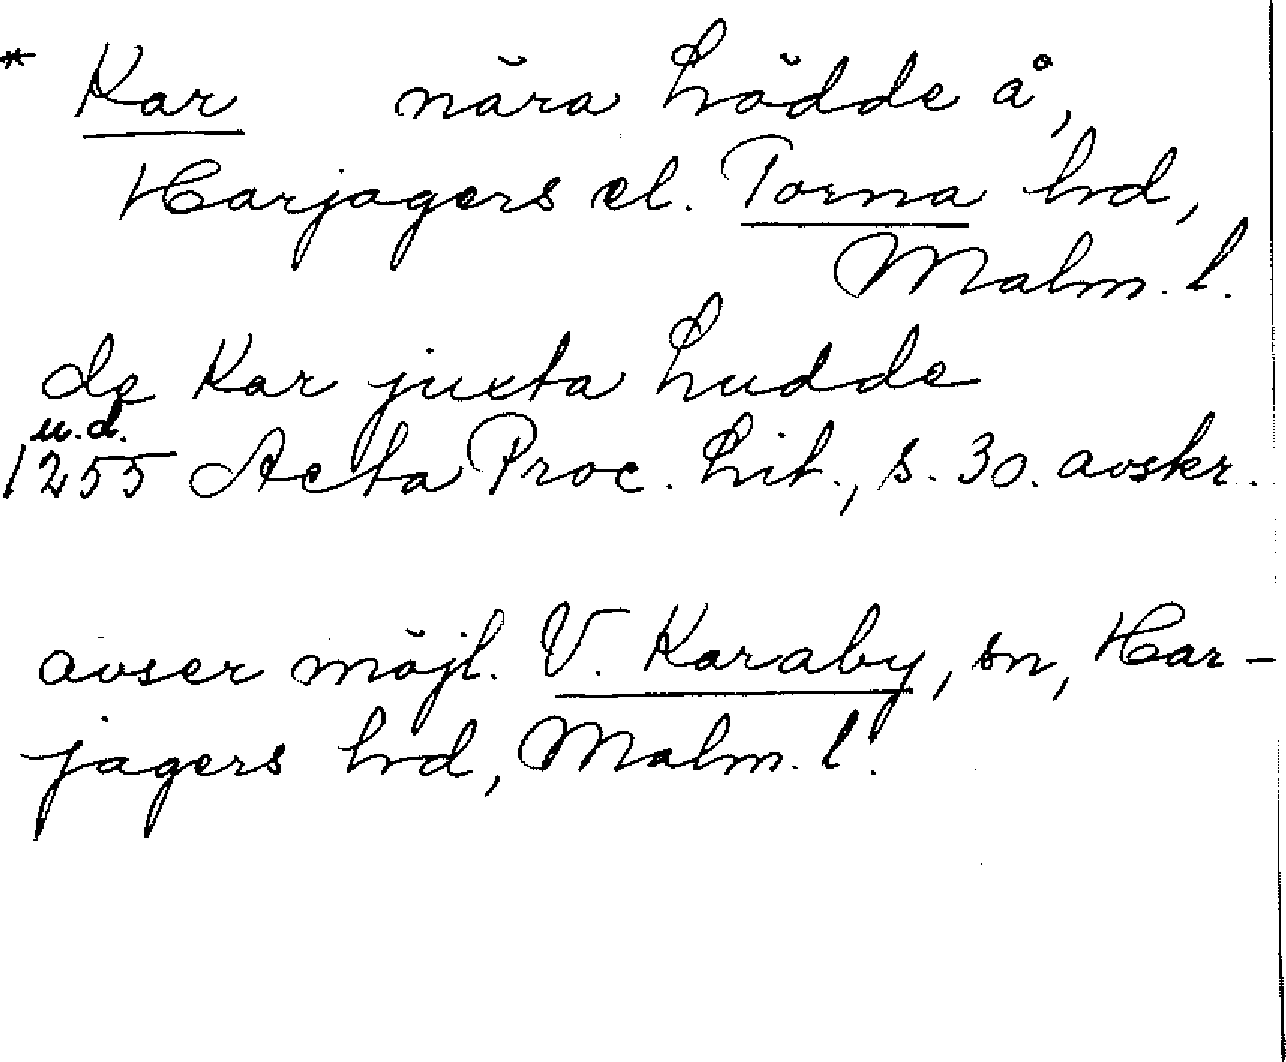 * Kar nära Lödde å,
Harjagers el. Torna hd,
Malm. l.
de Kar juxta Ludde
u.d.
1255 Acta Proc. Lit., s. 30. avskr.
avser möjl. V. Karaby, sn, Har-
jagers hd, Malm. l.